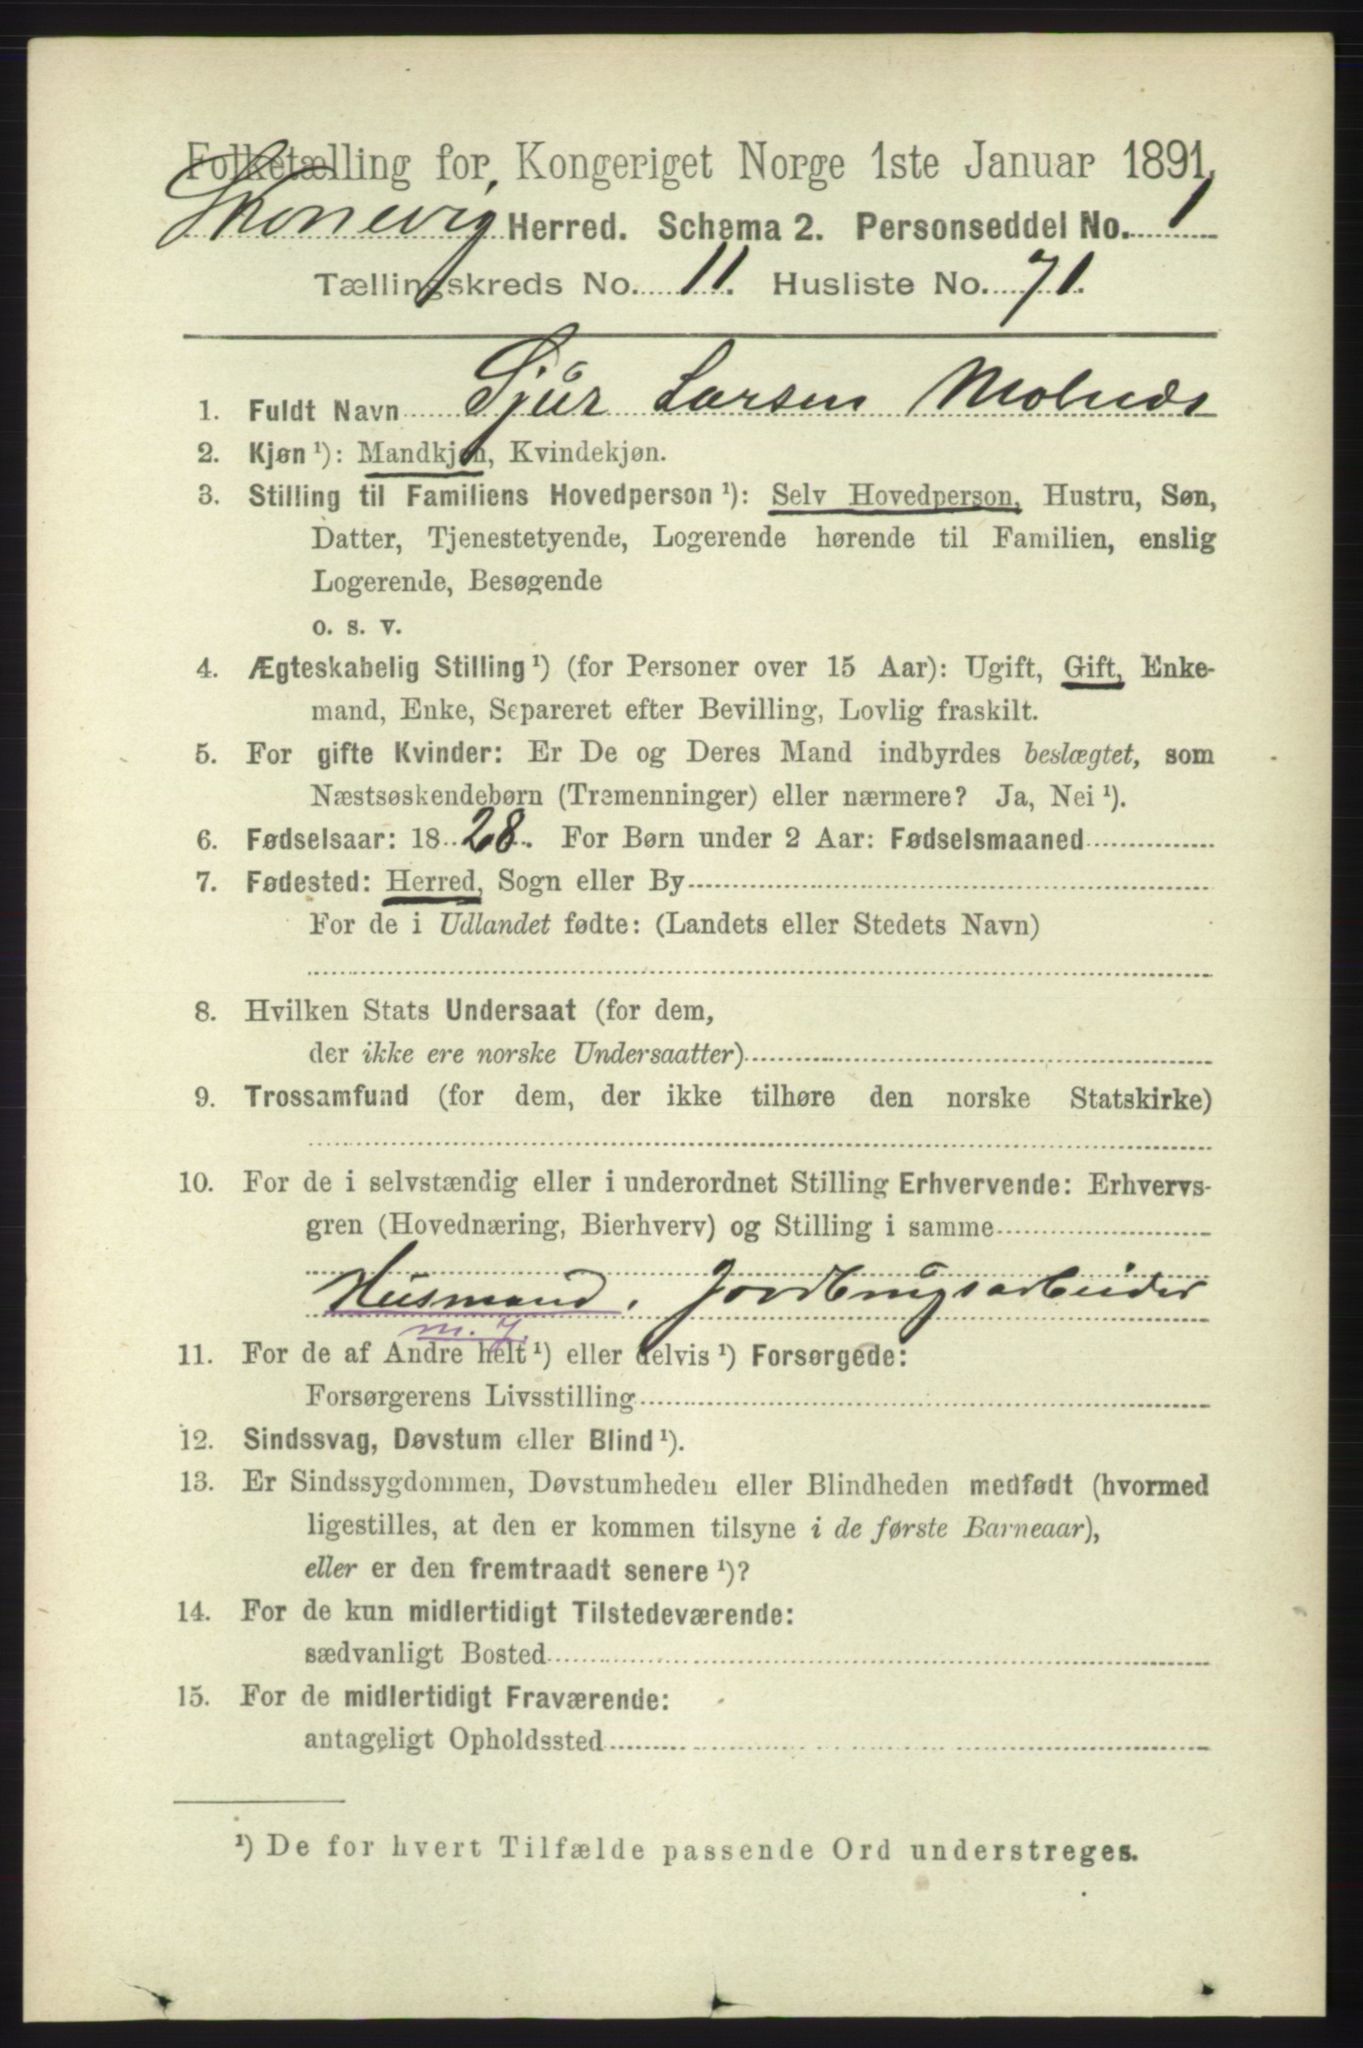 Folketælling for Kongeriget Norge 1ste Januar 1891.
Skonevig Herred. Schema 2. Personseddel No. 1
Tællingskreds No. 11. Husliste No. 71.
1. Fuldt Navn Sjur Larsen Molnes
2. Kjøn ¹): Mandkjøn, Kvindekjøn.
3. Stilling til Familiens Hovedperson ¹): Selv Hovedperson, Hustru, Søn,
Datter, Tjenestetyende, Logerende hørende til Familien, enslig
Logerende, Besøgende
o. s. v.
4. Ægteskabelig Stilling ¹) (for Personer over 15 Aar): Ugift, Gift, Enke-
mand, Enke, Separeret efter Bevilling, Lovlig fraskilt.
5. For gifte Kvinder: Er De og Deres Mand indbyrdes beslægtet, som
Næstsøskendebørn (Tremenninger) eller nærmere? Ja, Nei ¹).
6. Fødselsaar: 1828. For Børn under 2 Aar: Fødselsmaaned
7. Fødested: Herred, Sogn eller By
For de i Udlandet fødte: (Landets eller Stedets Navn)
8. Hvilken Stats Undersaat (for dem,
der ikke ere norske Undersaatter)
9. Trossamfund (for dem, der ikke tilhøre den norske Statskirke)
10. For de i selvstændig eller i underordnet Stilling Erhvervende: Erhvervs-
gren (Hovednæring, Bierhverv) og Stilling i samme
Husmand, Jordbrugsarbeider
m. J.
11. For de af Andre helt ¹) eller delvis ¹) Forsørgede:
Forsørgerens Livsstilling
12. Sindssvag, Døvstum eller Blind ¹).
13. Er Sindssygdommen, Døvstumheden eller Blindheden medfødt (hvormed
ligestilles, at den er kommen tilsyne i de første Barneaar),
eller er den fremtraadt senere ¹)?
14. For de kun midlertidigt Tilstedeværende:
sædvanligt Bosted
15. For de midlertidigt Fraværende:
antageligt Opholdssted
¹) De for hvert Tilfælde passende Ord understreges.